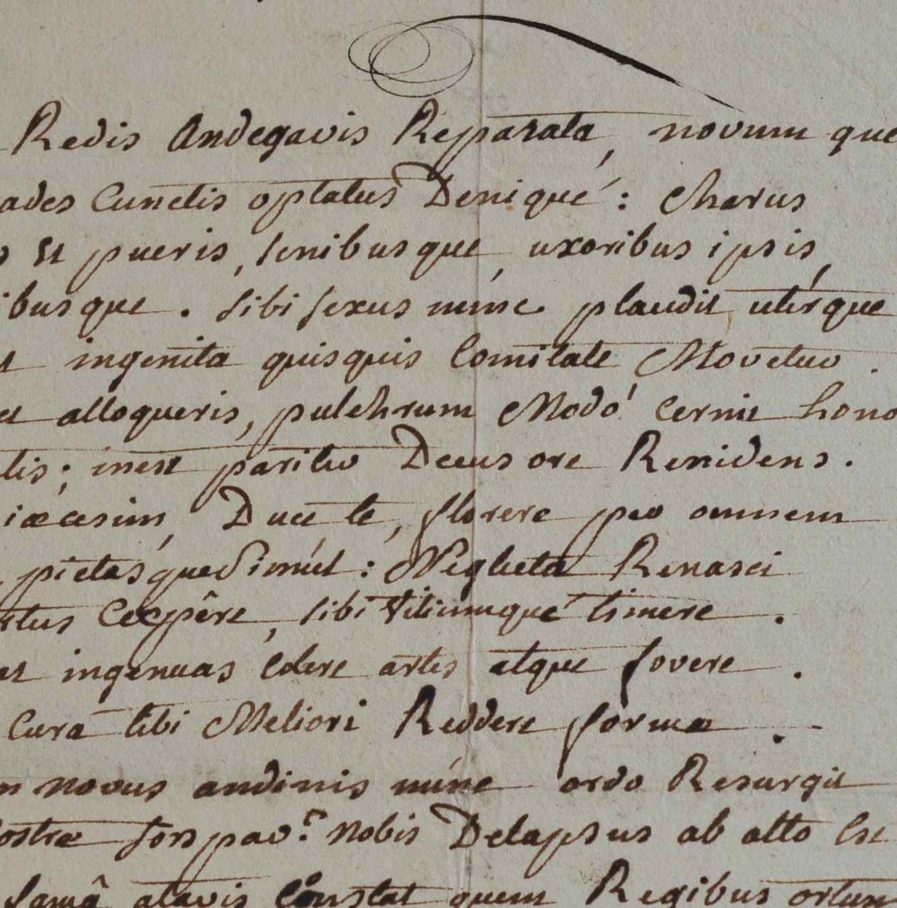 Redis Andegavis Reparata, novum que
ades Cunctis optatus Deniqué: Charus
s Et pueris, senibusque, uxoribus ipsis,
ibusque. sibi sexus núnc plaudit utérque
t ingenita quisquis Comitate Movetur.
et alloqueris, pulchrum Modó Cernit hono
lis; inest pariter Decus ore Renidens.
iæcesim, Duce te, florere per omnem
, pietásque Simúl: Neglecta Renasci
rtus Cœpêre, sibi vitiumqué timere.
et ingenuas Colere artes atque fovere.
Cura tibi Meliori Reddere formæ.
m novus andinis núnc ordo Resurgit
ostræ sors par? nobis Delapsus ab alto Est
famâ atavis Constat quem Regibus ortum